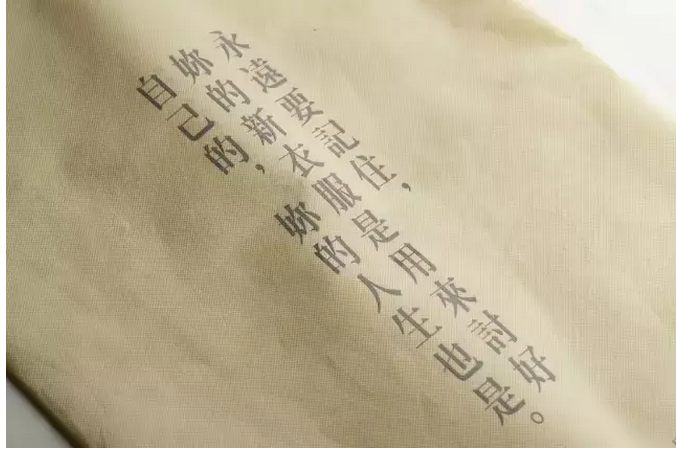 永遠要記住，
妳的新衣服是用來討好
自己的，妳的人生也是。